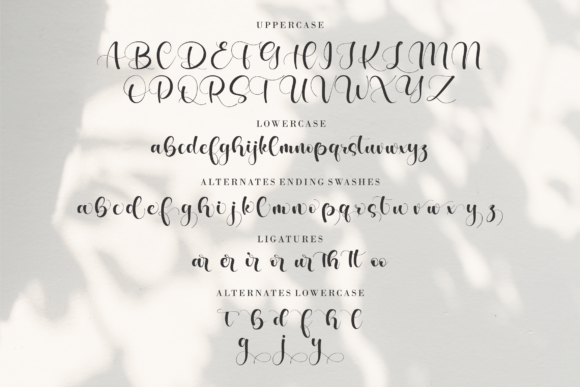 UPPERCASE
A B C D E F G H I J K L M N
O P Q R S T U V W X Y Z
LOWERCASE
abcdefghijklmnopqrstuvwxyz
ALTERNATES ENDING SWASHES
a b c d e f g h i j k l m n o p q r s t u v w x y z
LIGATURES
ar er ir or ur th tt oo
ALTERNATES LOWERCASE
t b d f h l
g j y